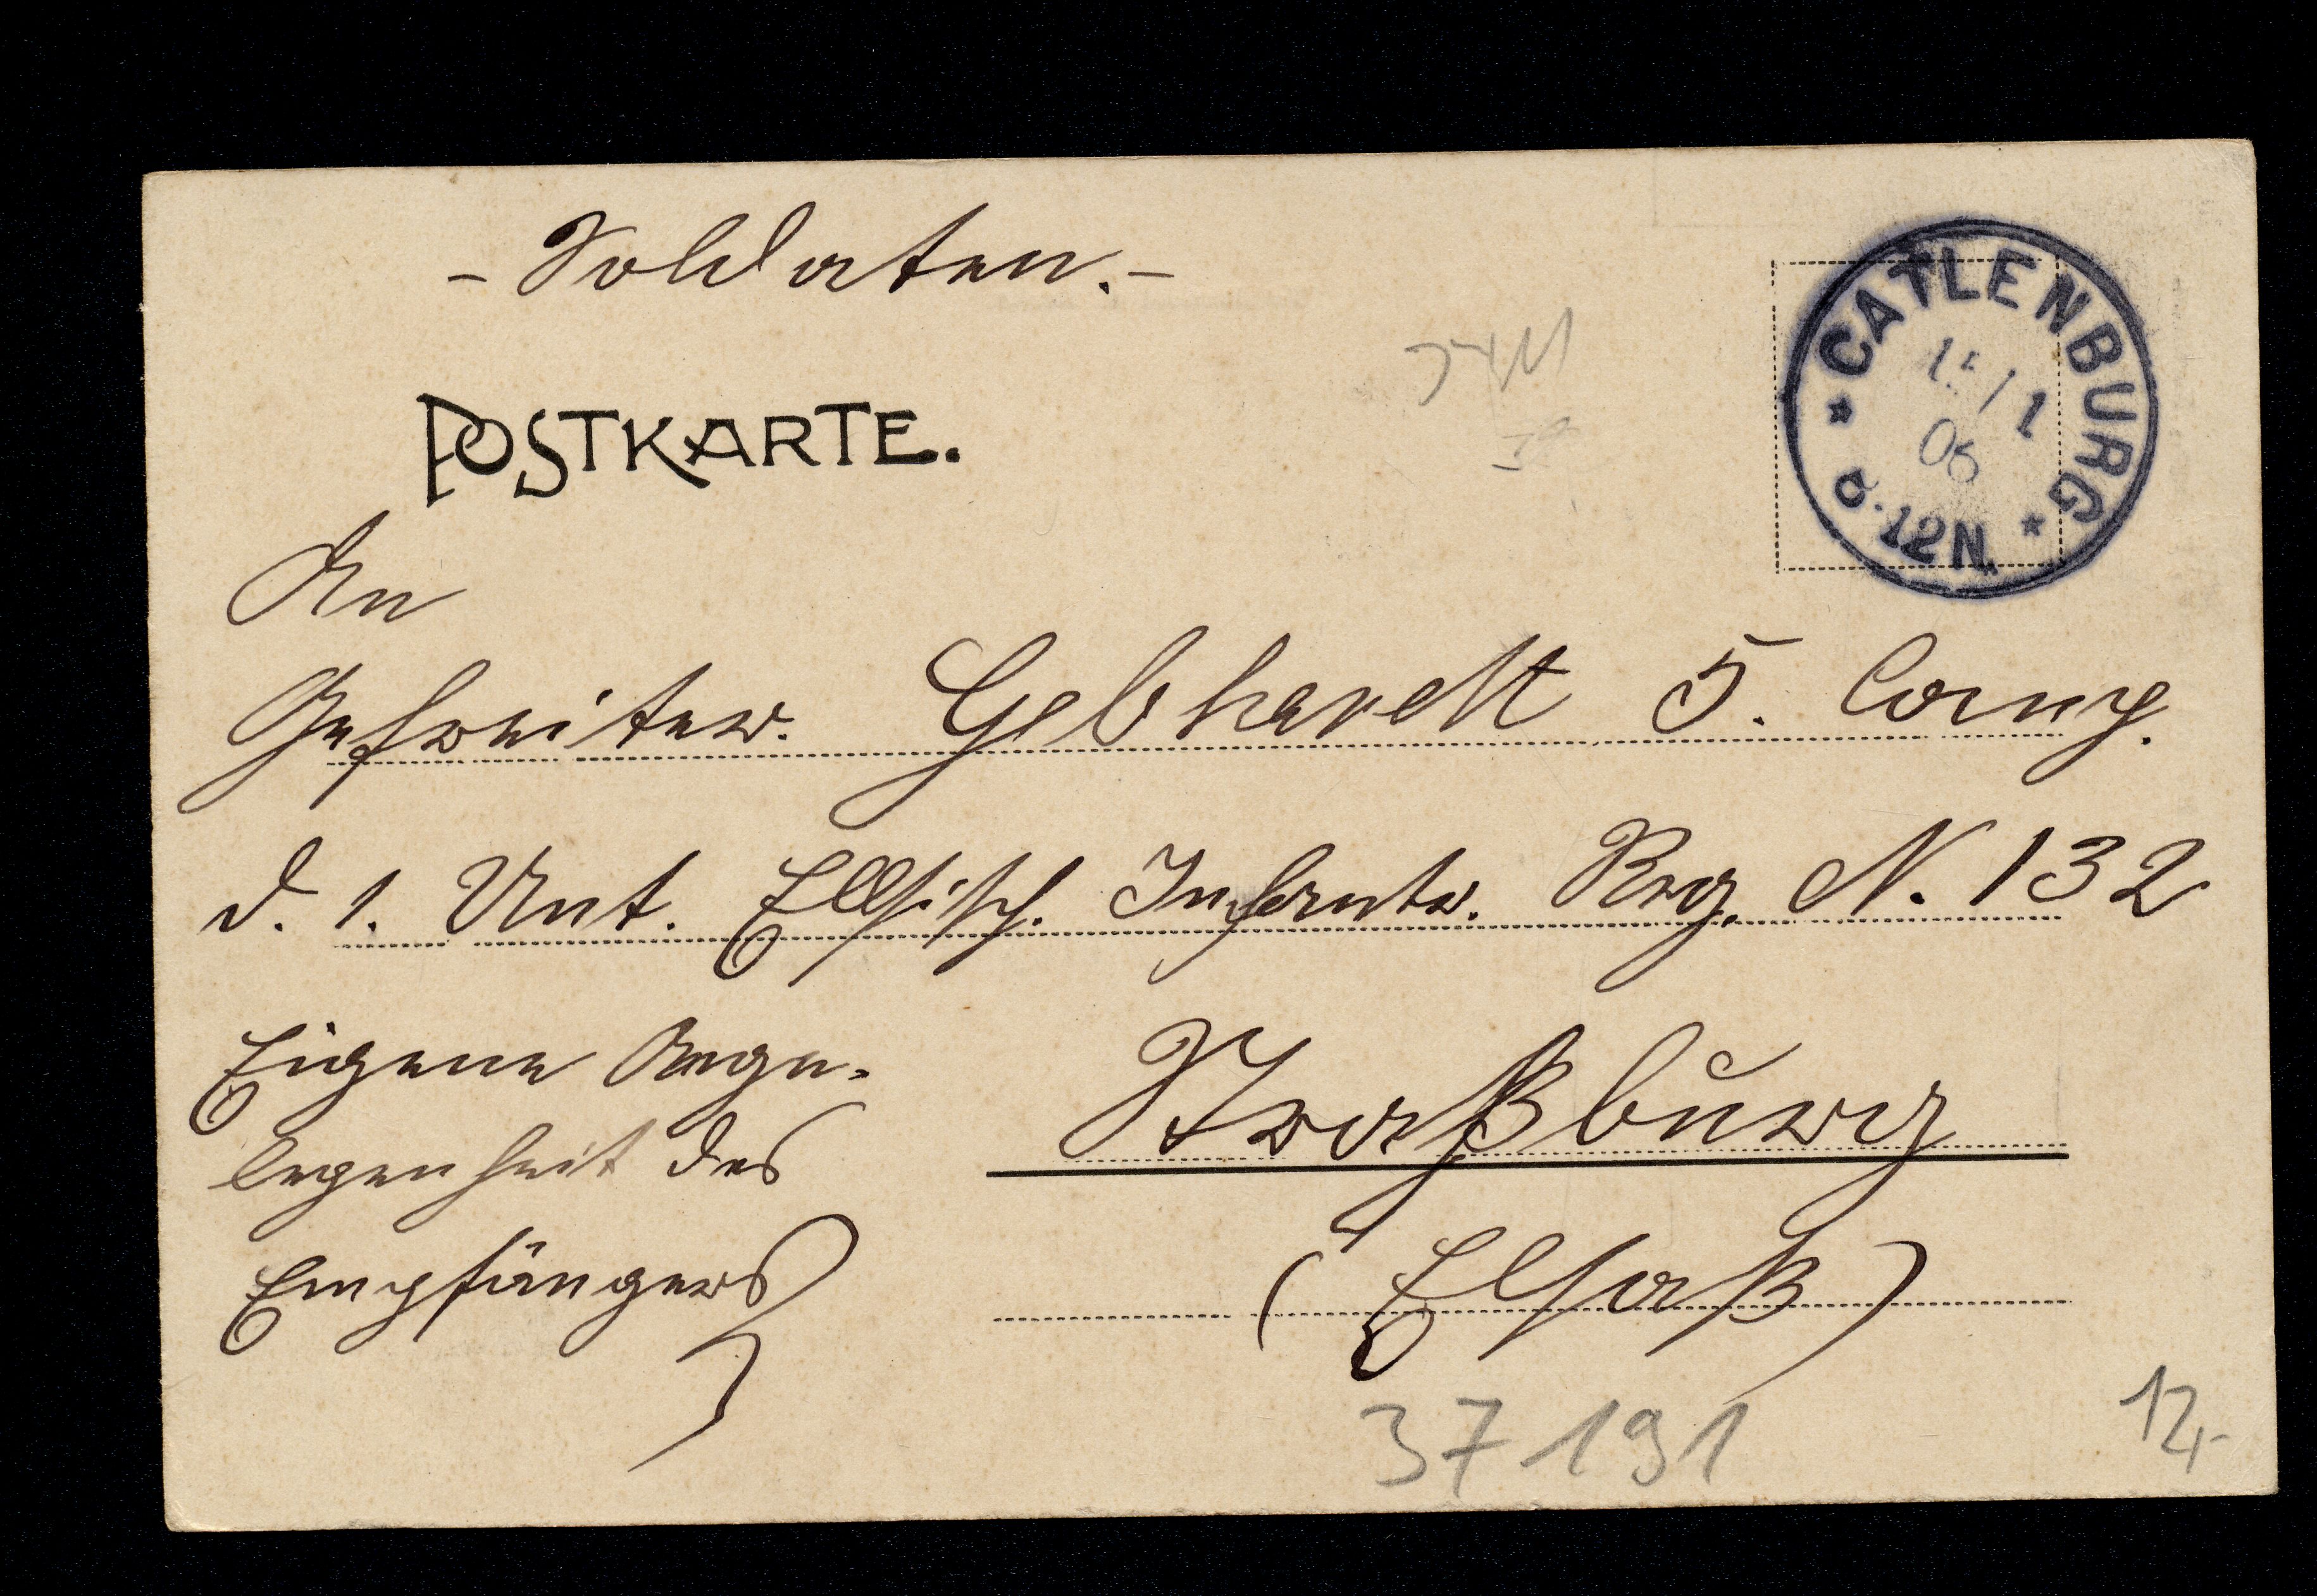 - Soldaten. -
POSTKARTE.
CATLENBURG
1
06
12N.
An
Gefreiter. Gebhardt 5. Comp.
d. 1. Unt. Ellsisch. Infantr. Reg. N. 132
Straßburg
(Elsaß)
Eigene Ange-
legenheit des
Empfängers
37 191
12,-